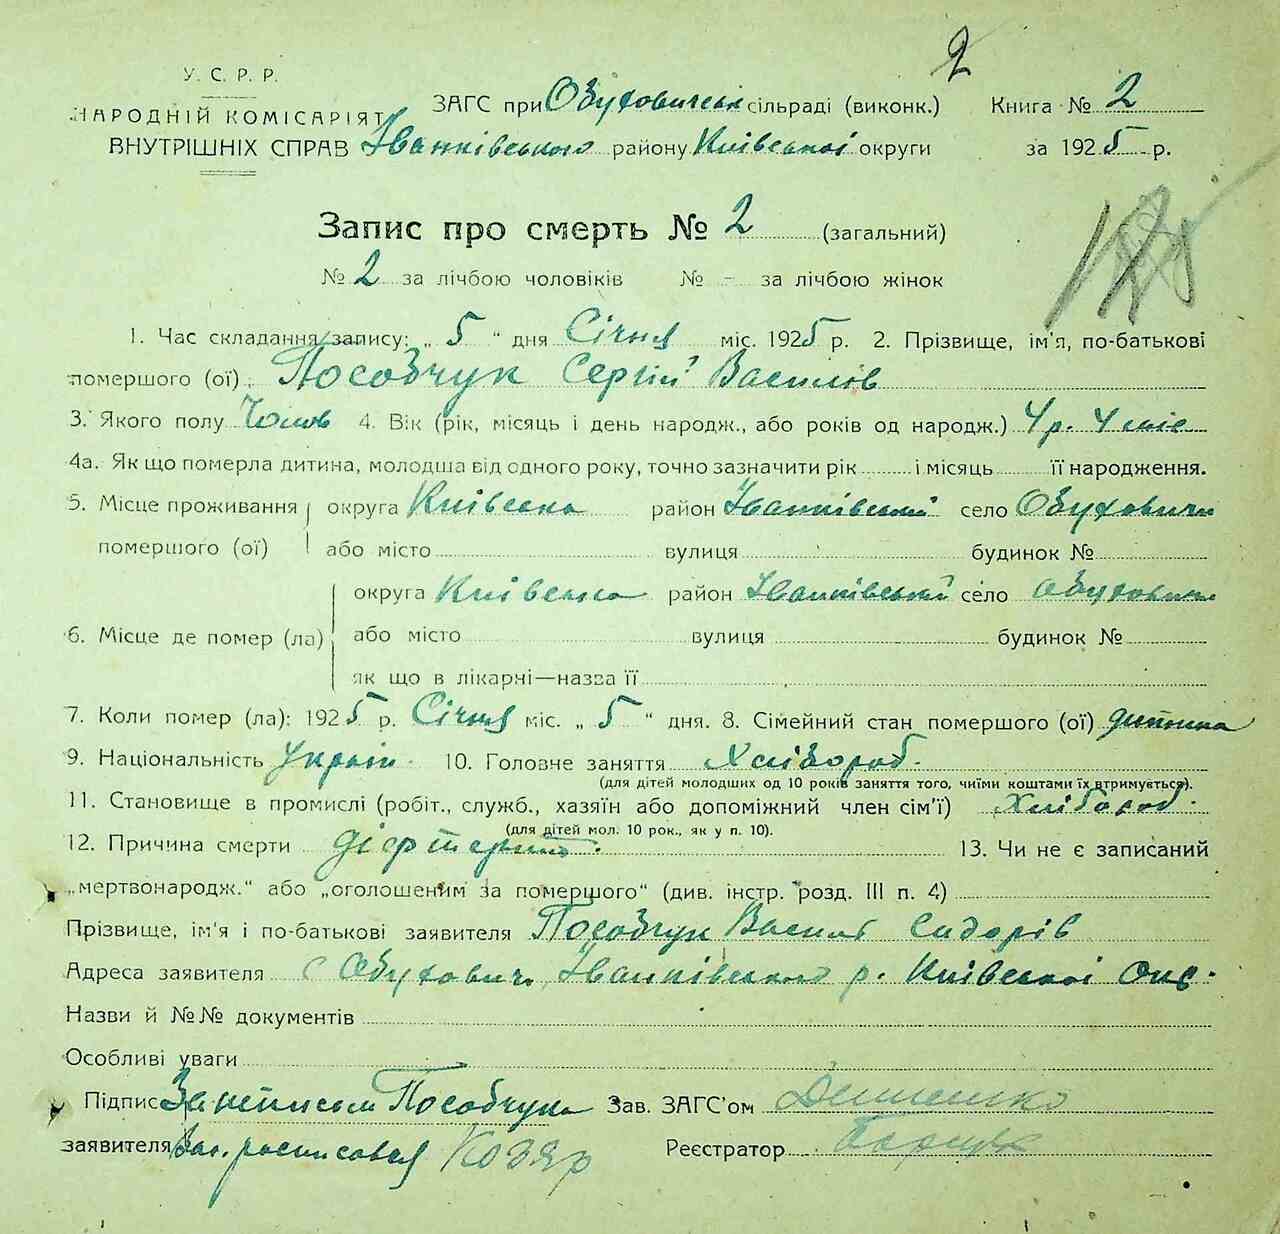 2
У. С. Р. Р.
НАРОДНІЙ КОМІСАРІЯТ
ВНУТРІШНІХ СПРАВ
ЗАГС при Обуховичській сільраді (виконк.) Книга № 2
Іванківського району Київської округи за 1925 р.
Запис про смерть № 2 (загальний)
№ 2 за лічбою чоловіків № - за лічбою жінок
1. Час складання запису: „ 5 “ дня Січня міс. 1925 р. 2. Прізвище, ім'я, по-батькові
помершого (ої) Пособчук Сергій Василів
3. Якого полу Чолов 4. Вік (рік, місяць і день народж., або років од народж.) 4 р. 4 міс
4а. Як що померла дитина, молодша від одного року, точно зазначити рік і місяць її народження.
5. Місце проживання округа Київська район Іванківський село Обуховичи
помершого (ої) або місто вулиця будинок №
округа Київська район Іванківський село Обуховичи
6. Місце де помер (ла) або місто вулиця будинок №
як що в лікарні—назва її
7. Коли помер (ла): 1925 р. Січня міс. „ 5 “ дня. 8. Сімейний стан помершого (ої) дитина
9. Національність Україн. 10. Головне заняття Хлібороб.
(для дітей молодших од 10 років заняття того, чиїми коштами їх втримується).
11. Становище в промислі (робіт., служб., хазяїн або допоміжний член сім'ї) Хлібороб.
(для дітей мол. 10 рок., як у п. 10).
12. Причина смерти 13. Чи не є записаний
„мертвонародж.“ або „оголошеним за помершого“ (див. інстр. розд. III п. 4)
Прізвище, ім'я і по-батькові заявителя Пособчук Василь Сидорів
Адреса заявителя с Обуховичи Іванківського р. Київської окр.
Назви й №№ документів
Особливі уваги
Підпис За неписьм Пособчука Зав. ЗАГС'ом
заявителя росписовся Козяр Реєстратор